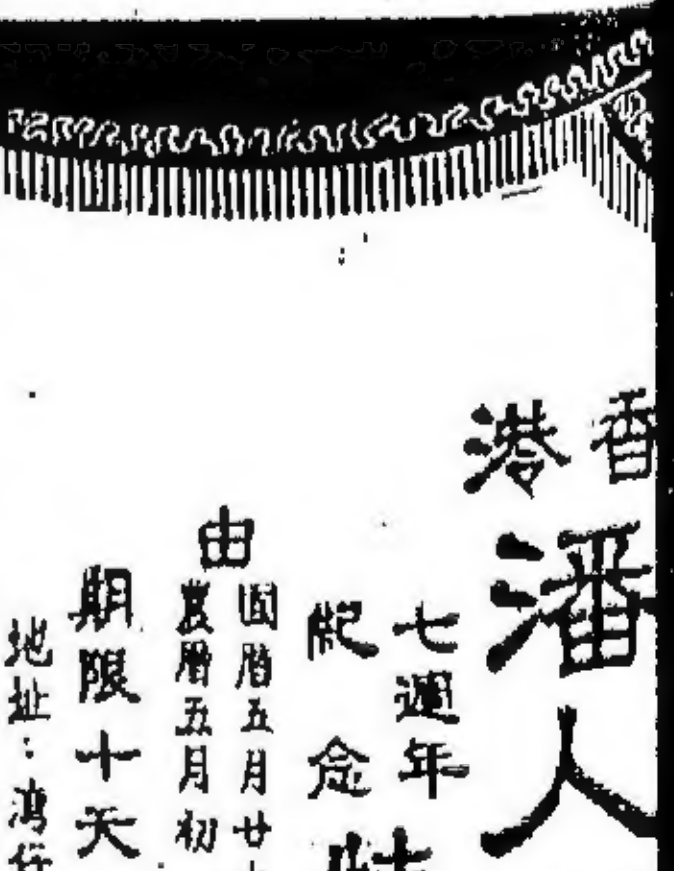 香港
潘人
七週年
紀念
由
國曆五月廿
農曆五月初
期限十天
地址：